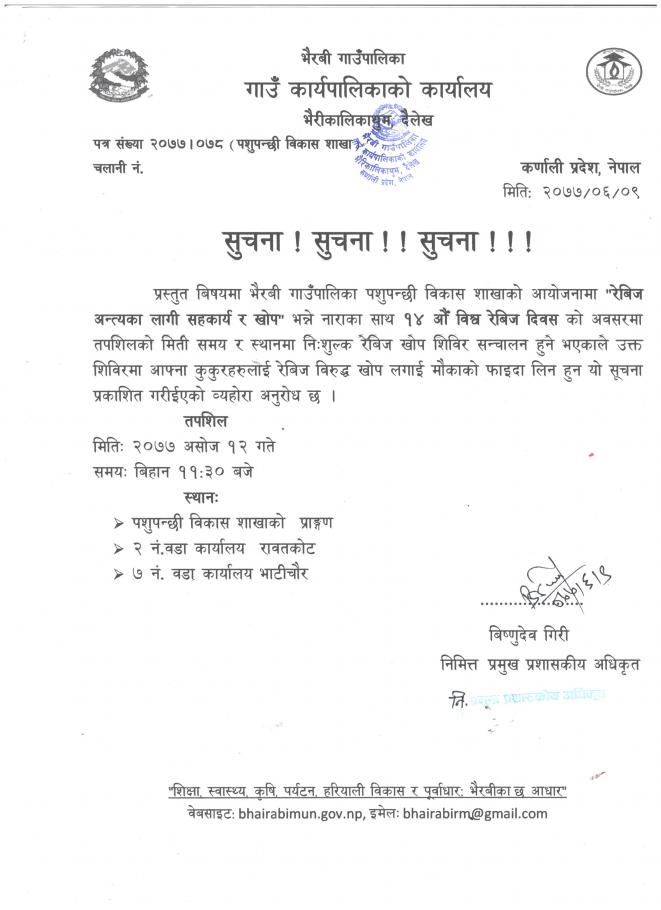 भैरबी गाउँपालिका
गाउँ कार्यपालिकाको कार्यालय
भैरीकालिकाथुम, दैलेख
पत्र संख्या २०७७।०७८ (पशुपन्छी विकास शाखा)
चलानी नं.
कर्णाली प्रदेश, नेपाल
मिति: २०७७/०६/०९
भैरबी गाउँपालिका
गाउँ कार्यपालिकाको कार्यालय
भैरीकालिकाथुम, दैलेख
कर्णाली प्रदेश, नेपाल
सुचना ! सुचना ! ! सुचना ! ! !
प्रस्तुत बिषयमा भैरबी गाउँपालिका पशुपन्छी विकास शाखाको आयोजनामा "रेबिज
अन्त्यका लागी सहकार्य र खोप" भन्ने नाराका साथ १४ औं विश्व रेबिज दिवस को अवसरमा
तपशिलको मिती समय र स्थानमा निःशुल्क रेबिज खोप शिविर सन्चालन हुने भएकाले उक्त
शिविरमा आफ्ना कुकुरहरुलाई रेबिज विरुद्ध खोप लगाई मौकाको फाइदा लिन हुन यो सूचना
प्रकाशित गरीईएको व्यहोरा अनुरोध छ ।
तपशिल
मितिः २०७७ असोज १२ गते
समयः बिहान ११:३० बजे
स्थानः
➢ पशुपन्छी विकास शाखाको प्राङ्गण
➢ २ नं.वडा कार्यालय रावतकोट
➢ ७ नं. वडा कार्यालय भाटीचौर
बिष्णुदेव गिरी
निमित्त प्रमुख प्रशासकीय अधिकृत
नि. प्रमुख प्रशासकीय अधिकृत
"शिक्षा, स्वास्थ्य, कृषि, पर्यटन, हरियाली विकास र पूर्वाधार: भैरबीका छ आधार"
वेबसाइट: bhairabimun.gov.np, इमेलः bhairabirm@gmail.com